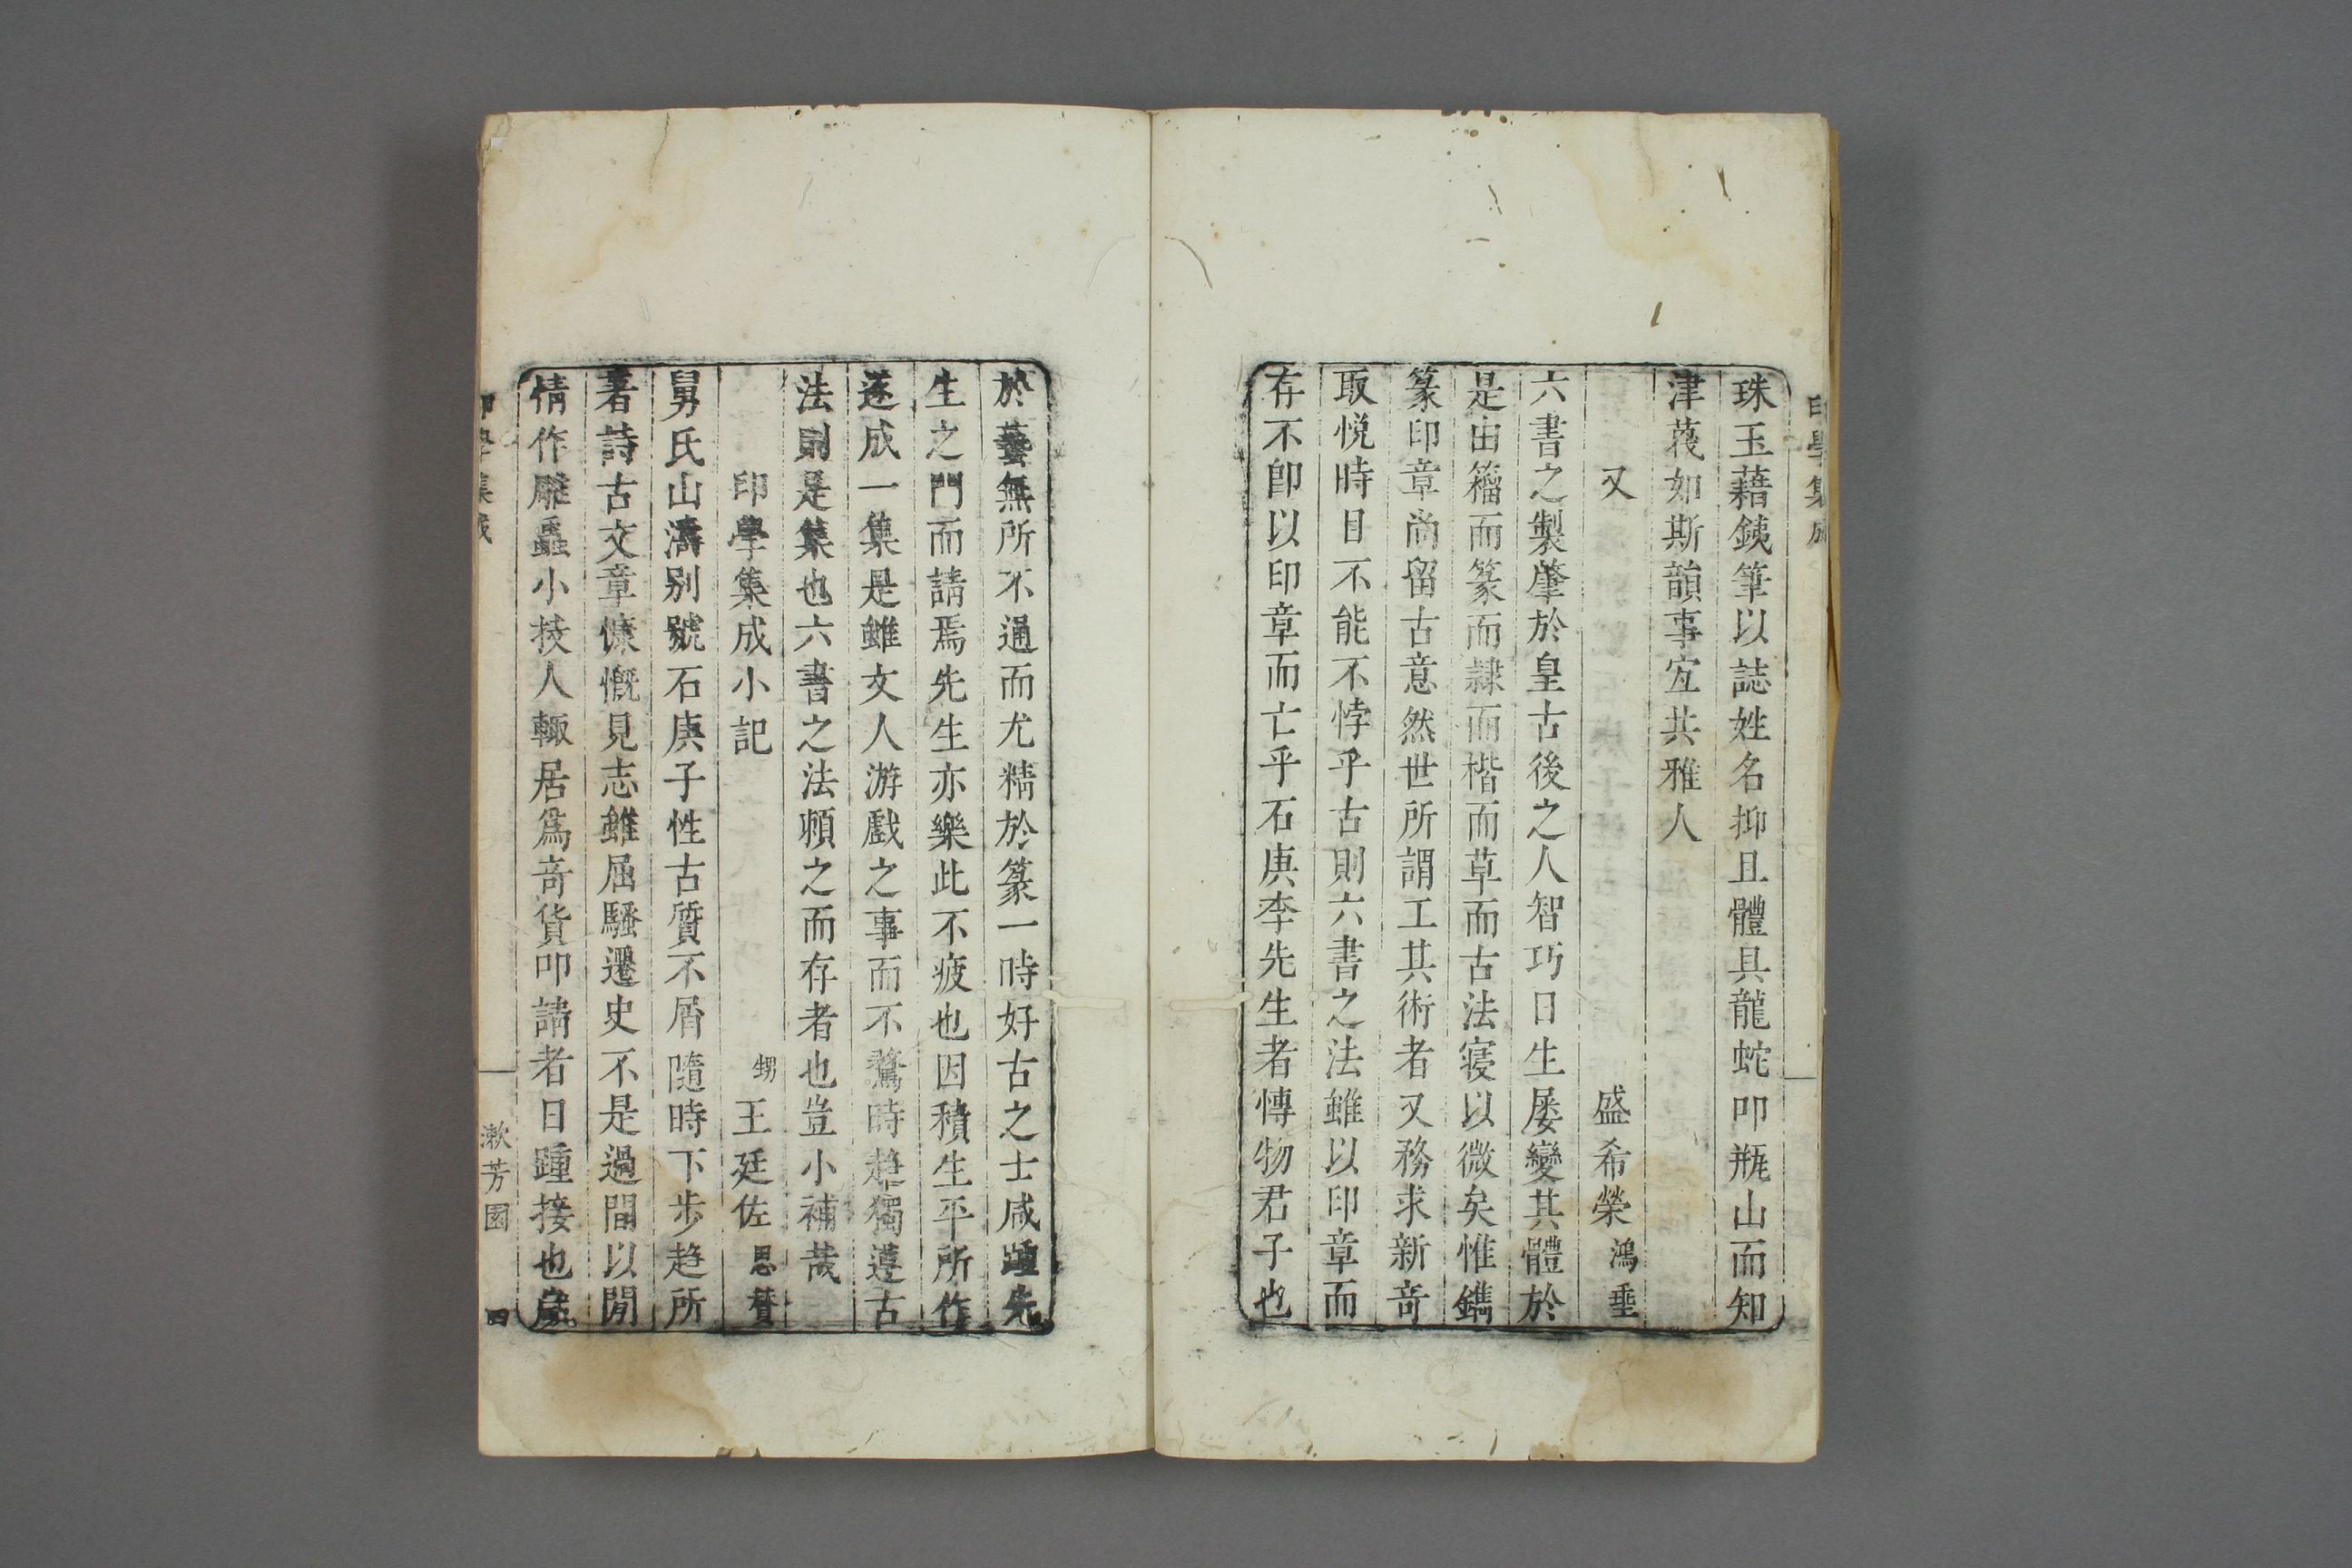 珠玉藉鉄筆以誌姓名抑且體具龍蛇叩瓶山而知
津蒐如斯韻事宐共雅人
又
盛希榮鴻垂
六書之製肇於皇古後之人智巧日生屡變其體於
是由籀而篆而隷而楷而草而古法寖以微矣惟鐫
篆印章尚留古意然世所謂工其術者又務求新竒
取悦時目不能不悖乎古則六書之法雖以印章而
存不卽以印章而亡乎石庚李先生者慱物君子也
於藝無所不通而尤精於篆一時好古之士咸踵先
生之門而請焉先生亦樂此不疲也因積生平所作
遂成一集是雖文人游戲之事而不鶩時趍獨遵古
法則是集也六書之法頼之而存者也豈小補哉
印學集成小記
甥王廷佐思賛
舅氏山濤别號石庚子性古質不屑隨時下步趍所
著詩古文章慷慨見志雖屈騷遷史不是過間以閒
情作雕蟲小技人輙居爲竒貨叩請者日踵接也
印學集成
漱芳園
四
印學集成